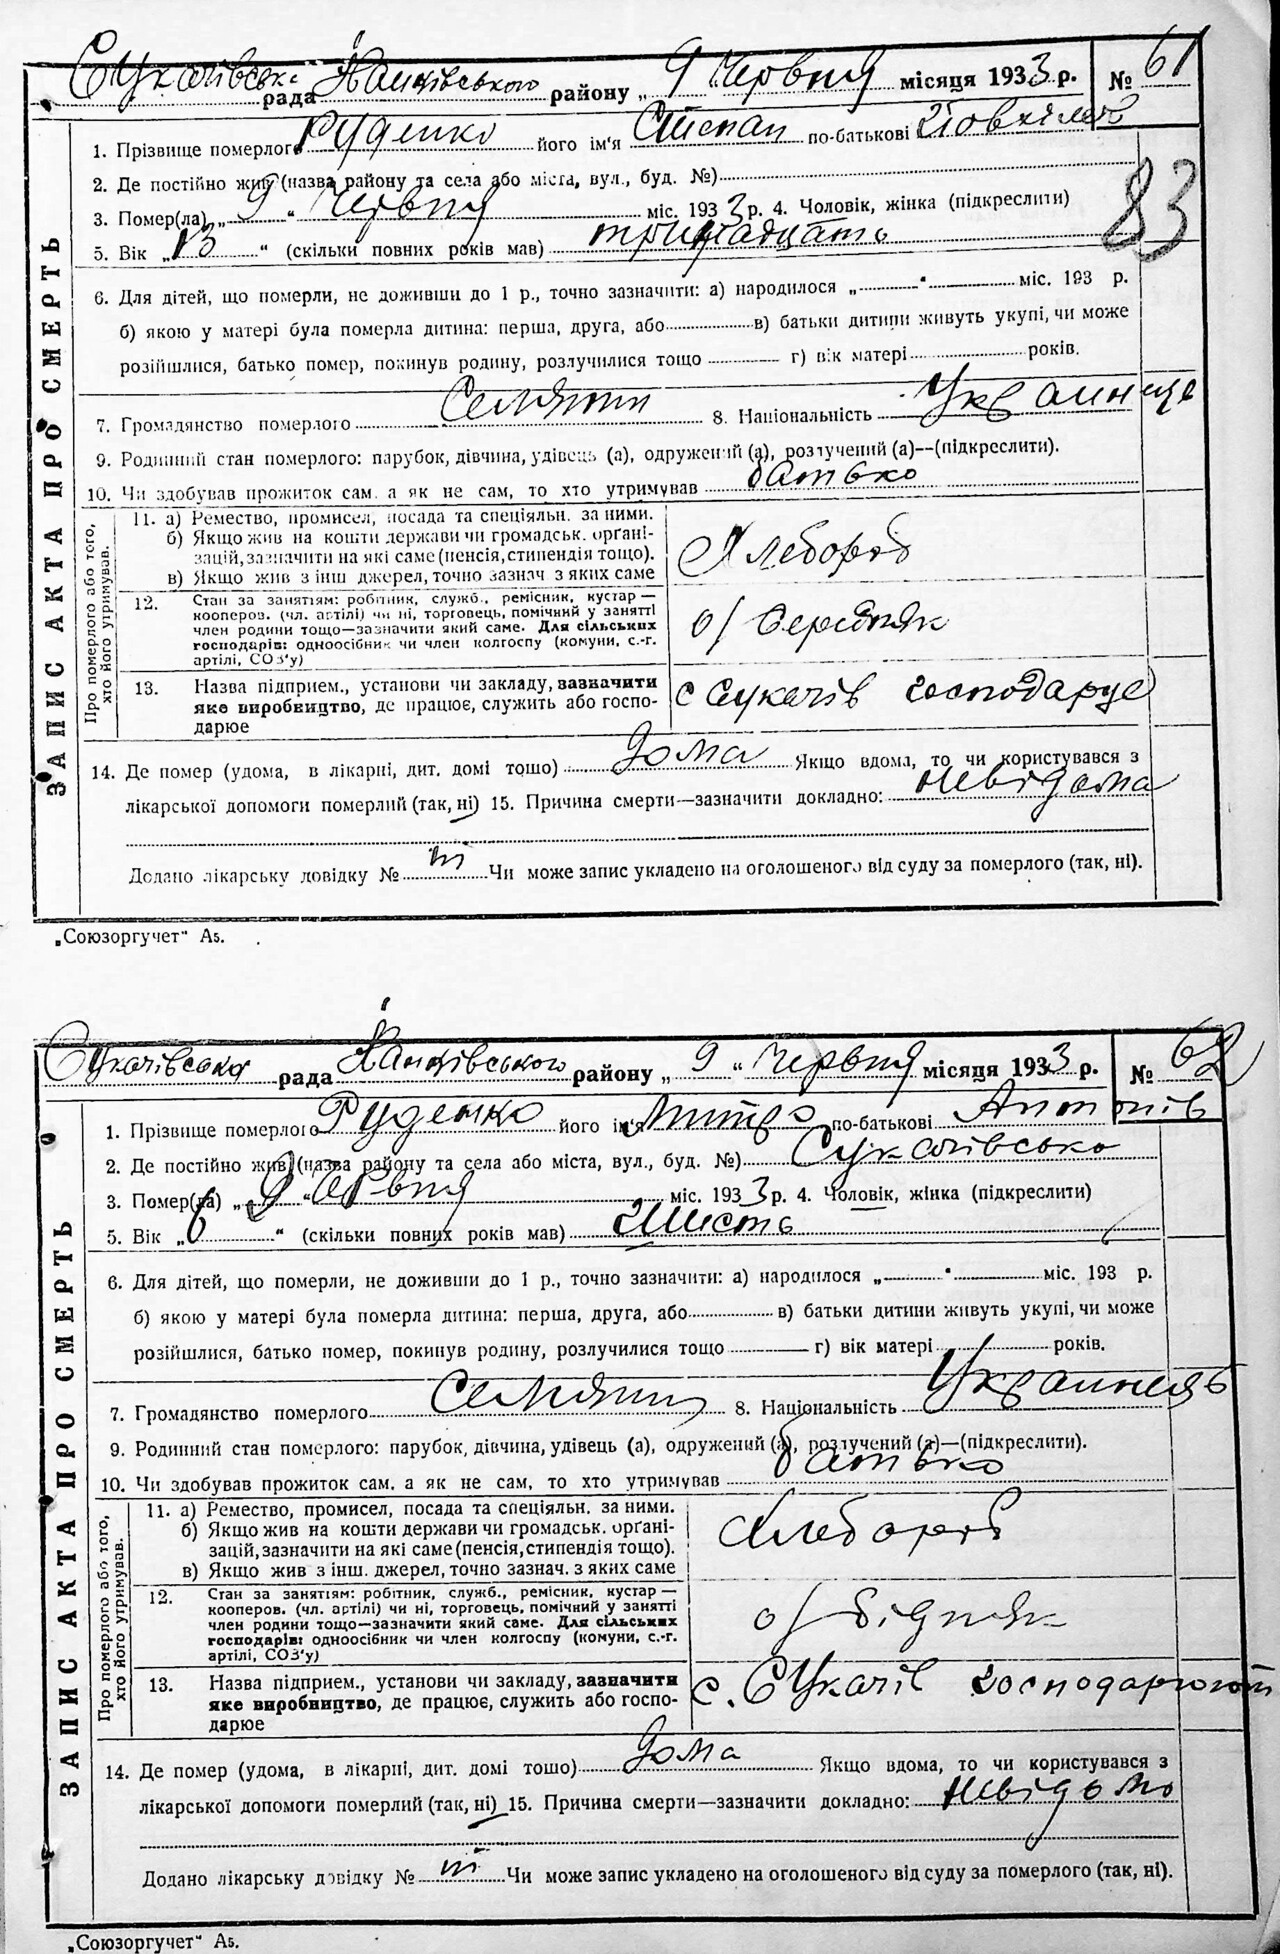 Сукачівська рада Іванківського району „ 9 “ Червня місяця 1933 р. № 61
83
ЗАПИС АКТА ПРО СМЕРТЬ
1. Прізвище померлого Руденко його ім'я Степан по-батькові
2. Де постійно жив (назва району та села або міста, вул., буд. №)
3. Помер(ла) „ 9 “ Червня міс. 1933 р. 4. Чоловік, жінка (підкреслити)
5. Вік „ 13 “ (скільки повних років мав) тринадцать
6. Для дітей, що померли, не доживши до 1 р., точно зазначити: а) народилося „ “ міс. 193 р.
б) якою у матері була померла дитина: перша, друга, або в) батьки дитини живуть укупі, чи може
розійшлися, батько помер, покинув родину, розлучилися тощо г) вік матері років.
7. Громадянство померлого Селянин 8. Національність
9. Родинний стан померлого: парубок, дівчина, удівець (а), одружений (а), розлучений (а)—(підкреслити).
10. Чи здобував прожиток сам, а як не сам, то хто утримував батько
Про померлого або того, хто його утримував.
11. а) Ремество, промисел, посада та спеціяльн. за ними.
б) Якщо жив на кошти держави чи громадськ. органі-
зацій, зазначити на які саме (пенсія, стипендія тощо).
в) Якщо жив з інш джерел, точно зазнач з яких саме
Хлебороб
12. Стан за занятіям: робітник, служб., ремісник, кустар—
кооперов. (чл. артілі) чи ні, торговець, помічний у занятті
член родини тощо—зазначити який саме. Для сільських
господарів: одноосібник чи член колгоспу (комуни, с.-г.
артілі, СОЗ'у)
о/ Середняк
13. Назва підприєм., установи чи закладу, зазначити
яке виробництво, де працює, служить або госпо-
дарює
с Сукачів господарує
14. Де помер (удома, в лікарні, дит. домі тощо) дома Якщо вдома, то чи користувався з
лікарської допомоги померлий (так, ні) 15. Причина смерти—зазначити докладно: невідома
Додано лікарську довідку № ні Чи може запис укладено на оголошеного від суду за померлого (так, ні).
„Союзоргучет“ А5.
Сукачівська рада Іванківського району „ 9 “ Червня місяця 1933 р. № 62
ЗАПИС АКТА ПРО СМЕРТЬ
1. Прізвище померлого Руденко його ім'я Митро по-батькові Антонів
2. Де постійно жив (назва району та села або міста, вул., буд. №) Сукачівсько
3. Помер(ла) „ 9 “ Червня міс. 1933 р. 4. Чоловік, жінка (підкреслити)
5. Вік „ 6 “ (скільки повних років мав) Шисть
6. Для дітей, що померли, не доживши до 1 р., точно зазначити: а) народилося „ “ міс. 193 р.
б) якою у матері була померла дитина: перша, друга, або в) батьки дитини живуть укупі, чи може
розійшлися, батько помер, покинув родину, розлучилися тощо г) вік матері років.
7. Громадянство померлого Селянин 8. Національність
9. Родинний стан померлого: парубок, дівчина, удівець (а), одружений (а), розлучений (а)—(підкреслити).
10. Чи здобував прожиток сам, а як не сам, то хто утримував батько
Про померлого або того, хто його утримував.
11. а) Ремество, промисел, посада та спеціяльн. за ними.
б) Якщо жив на кошти держави чи громадськ. органі-
зацій, зазначити на які саме (пенсія, стипендія тощо).
в) Якщо жив з інш. джерел, точно зазнач. з яких саме
Хлебороб
12. Стан за занятіям: робітник, служб., ремісник, кустар—
кооперов. (чл. артілі) чи ні, торговець, помічний у занятті
член родини тощо—зазначити який саме. Для сільських
господарів: одноосібник чи член колгоспу (комуни, с.-г.
артілі, СОЗ'у)
о/ бідняк
13. Назва підприєм., установи чи закладу, зазначити
яке виробництво, де працює, служить або госпо-
дарює
с. Сукачів
14. Де помер (удома, в лікарні, дит. домі тощо) дома Якщо вдома, то чи користувався з
лікарської допомоги померлий (так, ні) 15. Причина смерти—зазначити докладно: невідомо
Додано лікарську довідку № ні Чи може запис укладено на оголошеного від суду за померлого (так, ні).
„Союзоргучет“ А5.